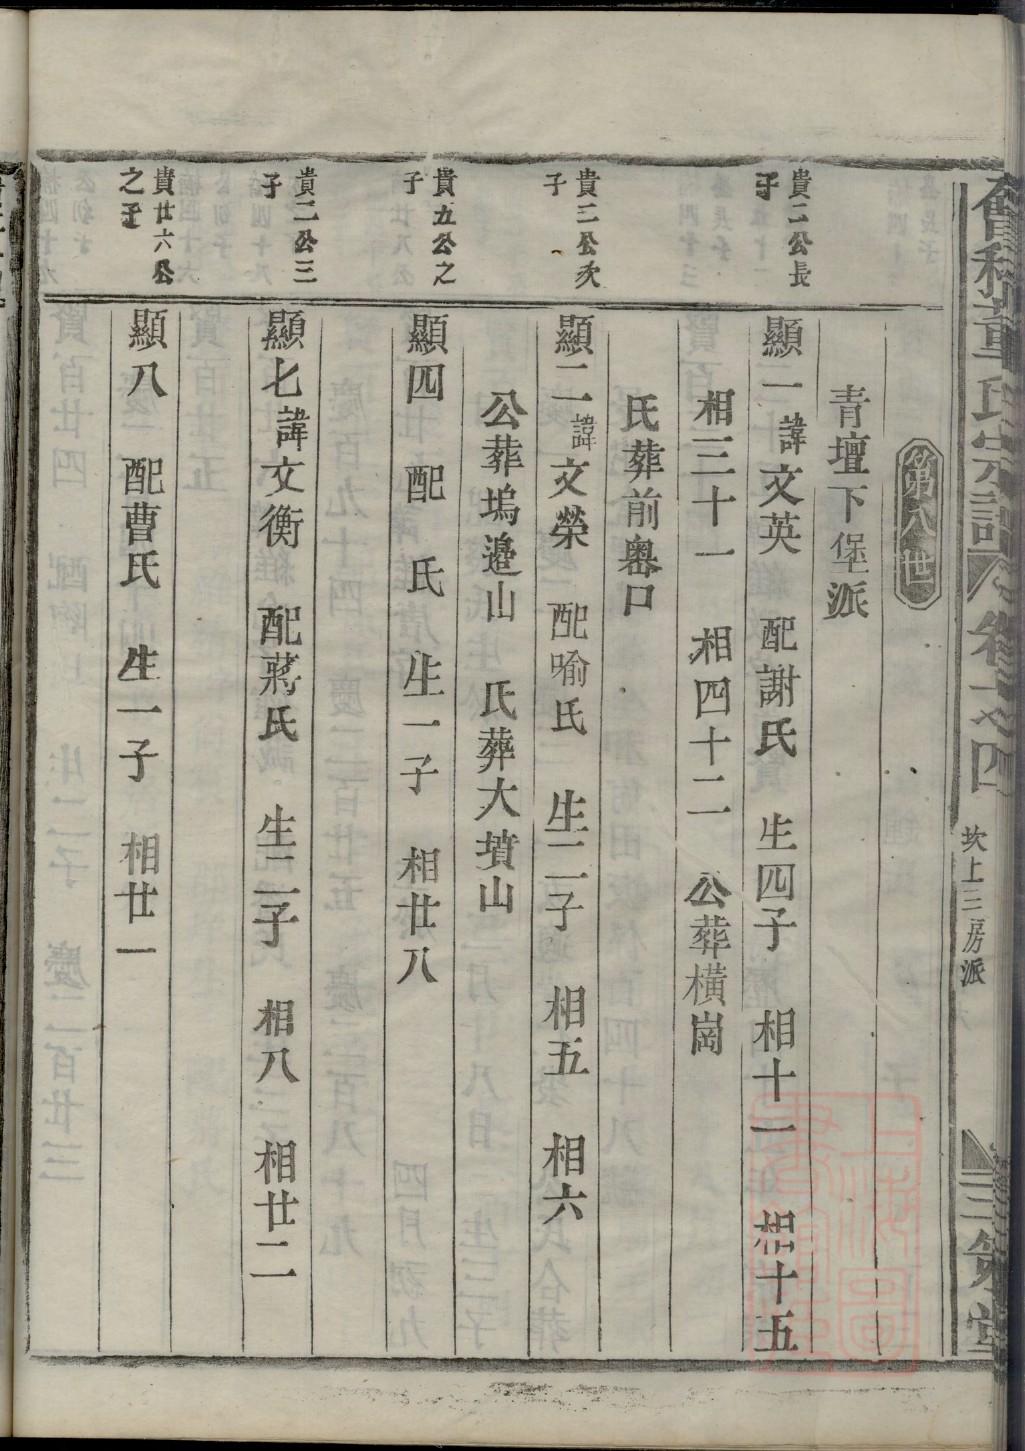 會稽章氏宗譜 卷之四
坎上三房派
第八世
青壇下堡派
貴二公長子
顯一 諱文英 配謝氏 生四子 相十一 相十五
相三十一 相四十二 公葬橫崗
氏葬前嶴口
貴二公次子
顯二 諱文榮 配喻氏 生二子 相五 相六
公葬塢邉山 氏葬大墳山
貴九公之子
顯四 配 氏 生一子 相廿八
貴二公三子
顯七 諱文衡 配蔣氏 生二子 相八 相廿二
貴廿六公之子
顯八 配曹氏 生一子 相廿一